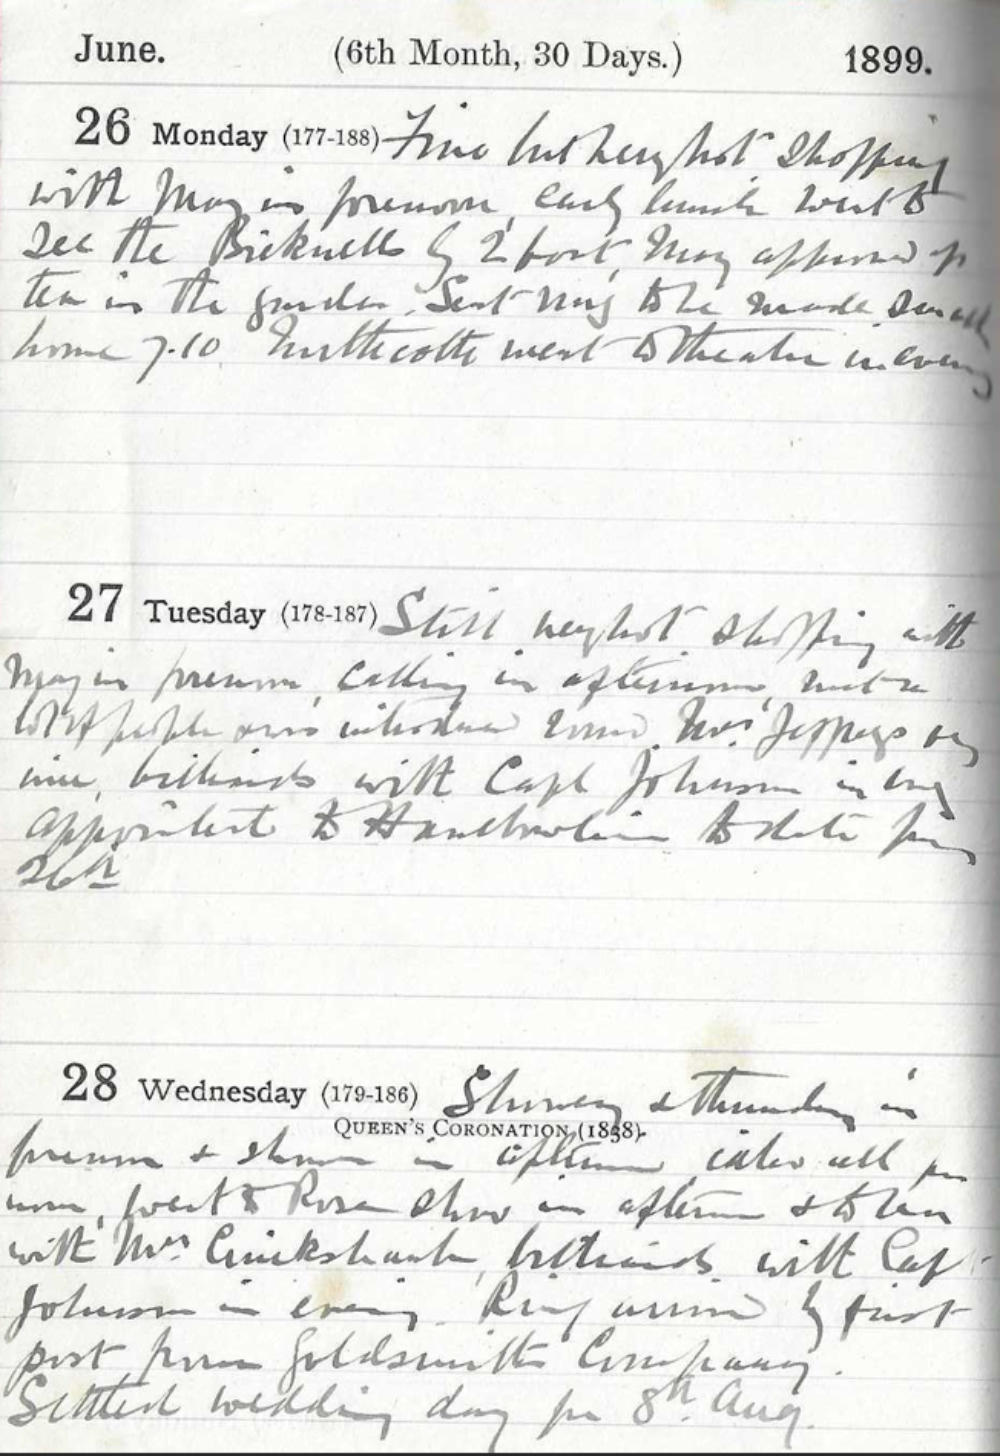 June. (6th Month, 30 Days.) 1899.
26 Monday (177-188) Fine but very hot Shopping
with May in forenoon, early lunch went to
see the Bicknells by 2 boat, May approved of
tea in the garden. Sent ring to be made small
home 7.10 went to theatre in evening
27 Tuesday (178-187) Still very hot shopping with
May in forenoon, calling in afternoon, met a
lot of people was introduced round. Mrs Jeffreys very
nice, billiards with Capt Johnson in evg
appointed to Haulbowline to date from
26th
28 Wednesday (179-186) Showery & thundery in
QUEEN'S CORONATION (1838).
forenoon & in afternoon
noon, went to Rose Show in afternoon & to tea
with Mrs Cruickshank, billiards with Capt
Johnson in evening. Ring arrived by first
post from Goldsmiths Company.
Settled wedding day for 8th Aug.